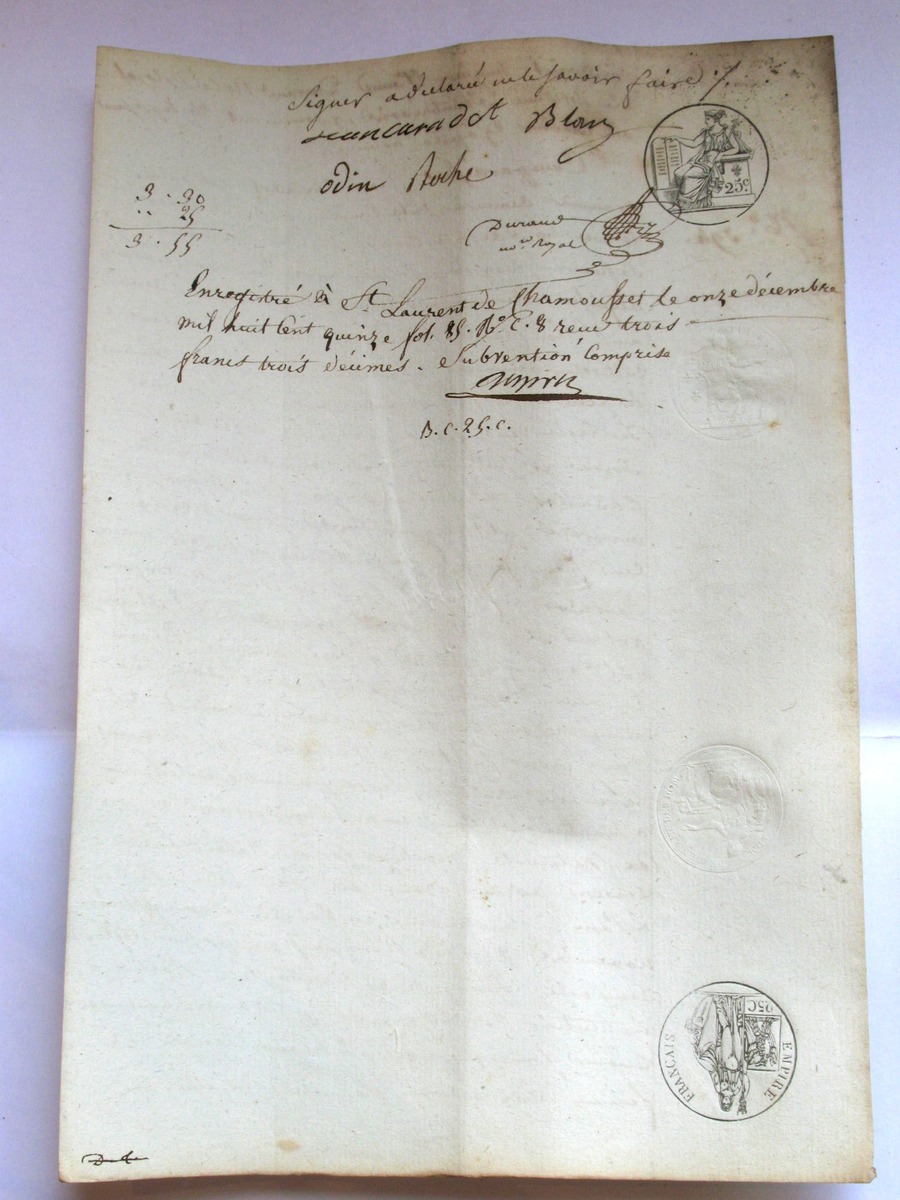 Signer a déclaré ne le savoir faire ·/.
Jean caradot Blanc
odin Roche
25c
3 . 30
.. 25
3 . 55
Durand
no.re Royal
Enregistré à St Laurent de Chamousset le onze décembre
mil huit Cent quinze fol. 85. Ro C. 8 recu trois
francs trois décimes. Subvention Comprise
B. C. 25. c.
EMPIRE
FRANÇAIS
25C